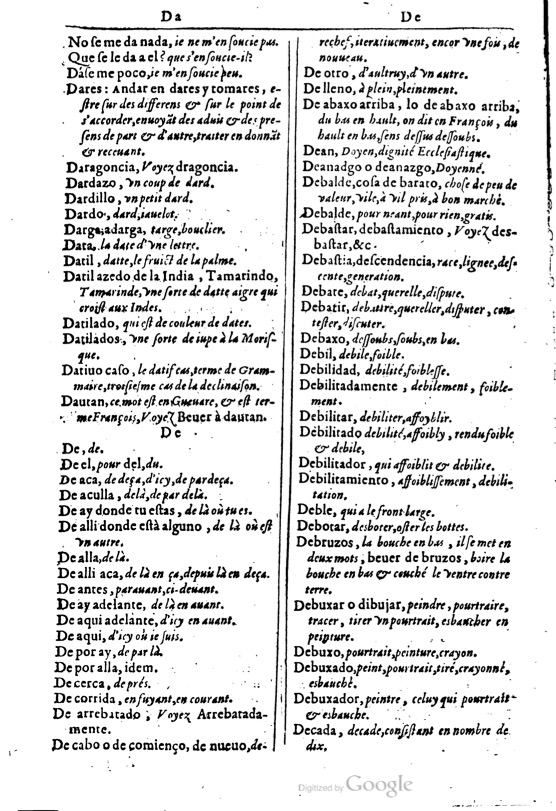 Da
De
No ſe me da nada, ie ne m'en ſoucie pas.
Que ſe le da a el? que s'en ſoucie-il?
Dàſe me poco, ie m'en ſoucie peu.
Dares: Andar en dares y tomares, e-
ſtre ſur des differens & ſur le point de
s'accorder, enuoyãt des aduis & des pre-
ſens de part & d'autre, traiter en donnãt
& receuant.
Daragoncia, Voyez dragoncia.
Dardazo, vn coup de dard.
Dardillo, vn petit dard.
Dardo, dard, iauelot.
Darga, adarga, targe, bouclier.
Data, la date d'vne lettre.
Datil, datte, le fruict de la palme.
Datil azedo de la India, Tamarindo,
Tamarinde, vne ſorte de datte aigre qui
croiſt aux Indes.
Datilado, qui est de couleur de dates.
Datilados, vne ſorte de iupe à la Moriſ-
que.
Datiuo caſo, le datif cas, terme de Gram-
maire, troiſieſme cas de la declinaiſon.
Dautan, ce mot est en Gueuare, & est ter-
me François, Voyez Beuer à dautan.
De
De, de.
De el, pour del, du.
De aca, de deça, d'icy, de par deça.
De aculla, delà, de par delà.
De ay donde tu estas, de là où tu es.
De alli donde està alguno, de là où est
vn autre.
De alla, de là.
De alli aca, de là en ça, depuis là en deça.
De antes, parauant, ci-deuant.
De ay adelante, de là en auant.
De aqui adelante, d'icy en auant.
De aqui, d'icy où ie ſuis.
De por ay, de par là.
De por alla, idem.
De cerca, de prés.
De corrida, en fuyant, en courant.
De arrebatado, Voyez Arrebatada-
mente.
De cabo o de comienço, de nueuo, de-
rechef, iteratiuement, encor vne fou, de
nouueau.
De otro, d'aultruy, d'vn autre.
De lleno, à plein, pleinement.
De abaxo arriba, lo de abaxo arriba,
du bas en hault, on dit en François, du
hault en bas, ſens deſſus deſſoubs.
Dean, Doyen, dignité Eccleſiaſtique.
Deanadgo o deanazgo, Doyenné.
Debalde, coſa de barato, choſe de peu de
valeur, vile, à vil pris, à bon marché.
Debalde, pour neant, pour rien, gratis.
Debaſtar, debaſtamiento, Voyez des-
baſtar, &c.
Debaſtia, deſcendencia, race, lignee, deſ-
cente, generation.
Debate, debat, querelle, diſpute.
Debatir, debattre, quereller, diſputer, con
teſter, diſcuter.
Debaxo, deſſoubs, ſoubs, en bas.
Debil, debile, foible.
Debilidad, debilité, foibleſſe.
Debilitadamente, debilement, foible-
ment.
Debilitar, debiliter, affoyblir.
Debilitado debilité, affoibly, rendu foible
& debile,
Debilitador, qui affoiblit & debilite.
Debilitamiento, affoibliſſement, debili-
tation.
Deble, qui a le front large.
Debotar, desboter, oſter les bottes.
Debruzos, la bouche en bas, il ſe met en
deux mots, beuer de bruzos, boire la
bouche en bas & couché le ventre contre
terre.
Debuxar o dibujar, peindre, pourtraire,
tracer, tirer vn pourtrait, esbaucher en
peinture.
Debuxo, pourtrait, peinture, crayon.
Debuxado, peint, pourtrait, tiré, crayonné,
esbauché.
Debuxador, peintre, celuy qui pourtrait
& esbauche.
Decada, decade, conſiſtant en nombre de
dix.
Digitized by Google